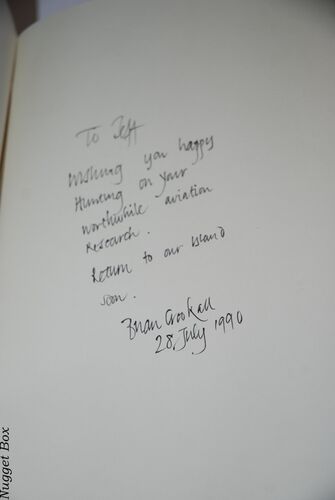 To Jeff
Wishing you happy
Hunting on your
worthwhile aviation
Research.
Return to our Island
soon.
Brian Crookall
28 July 1990
Nugget Box